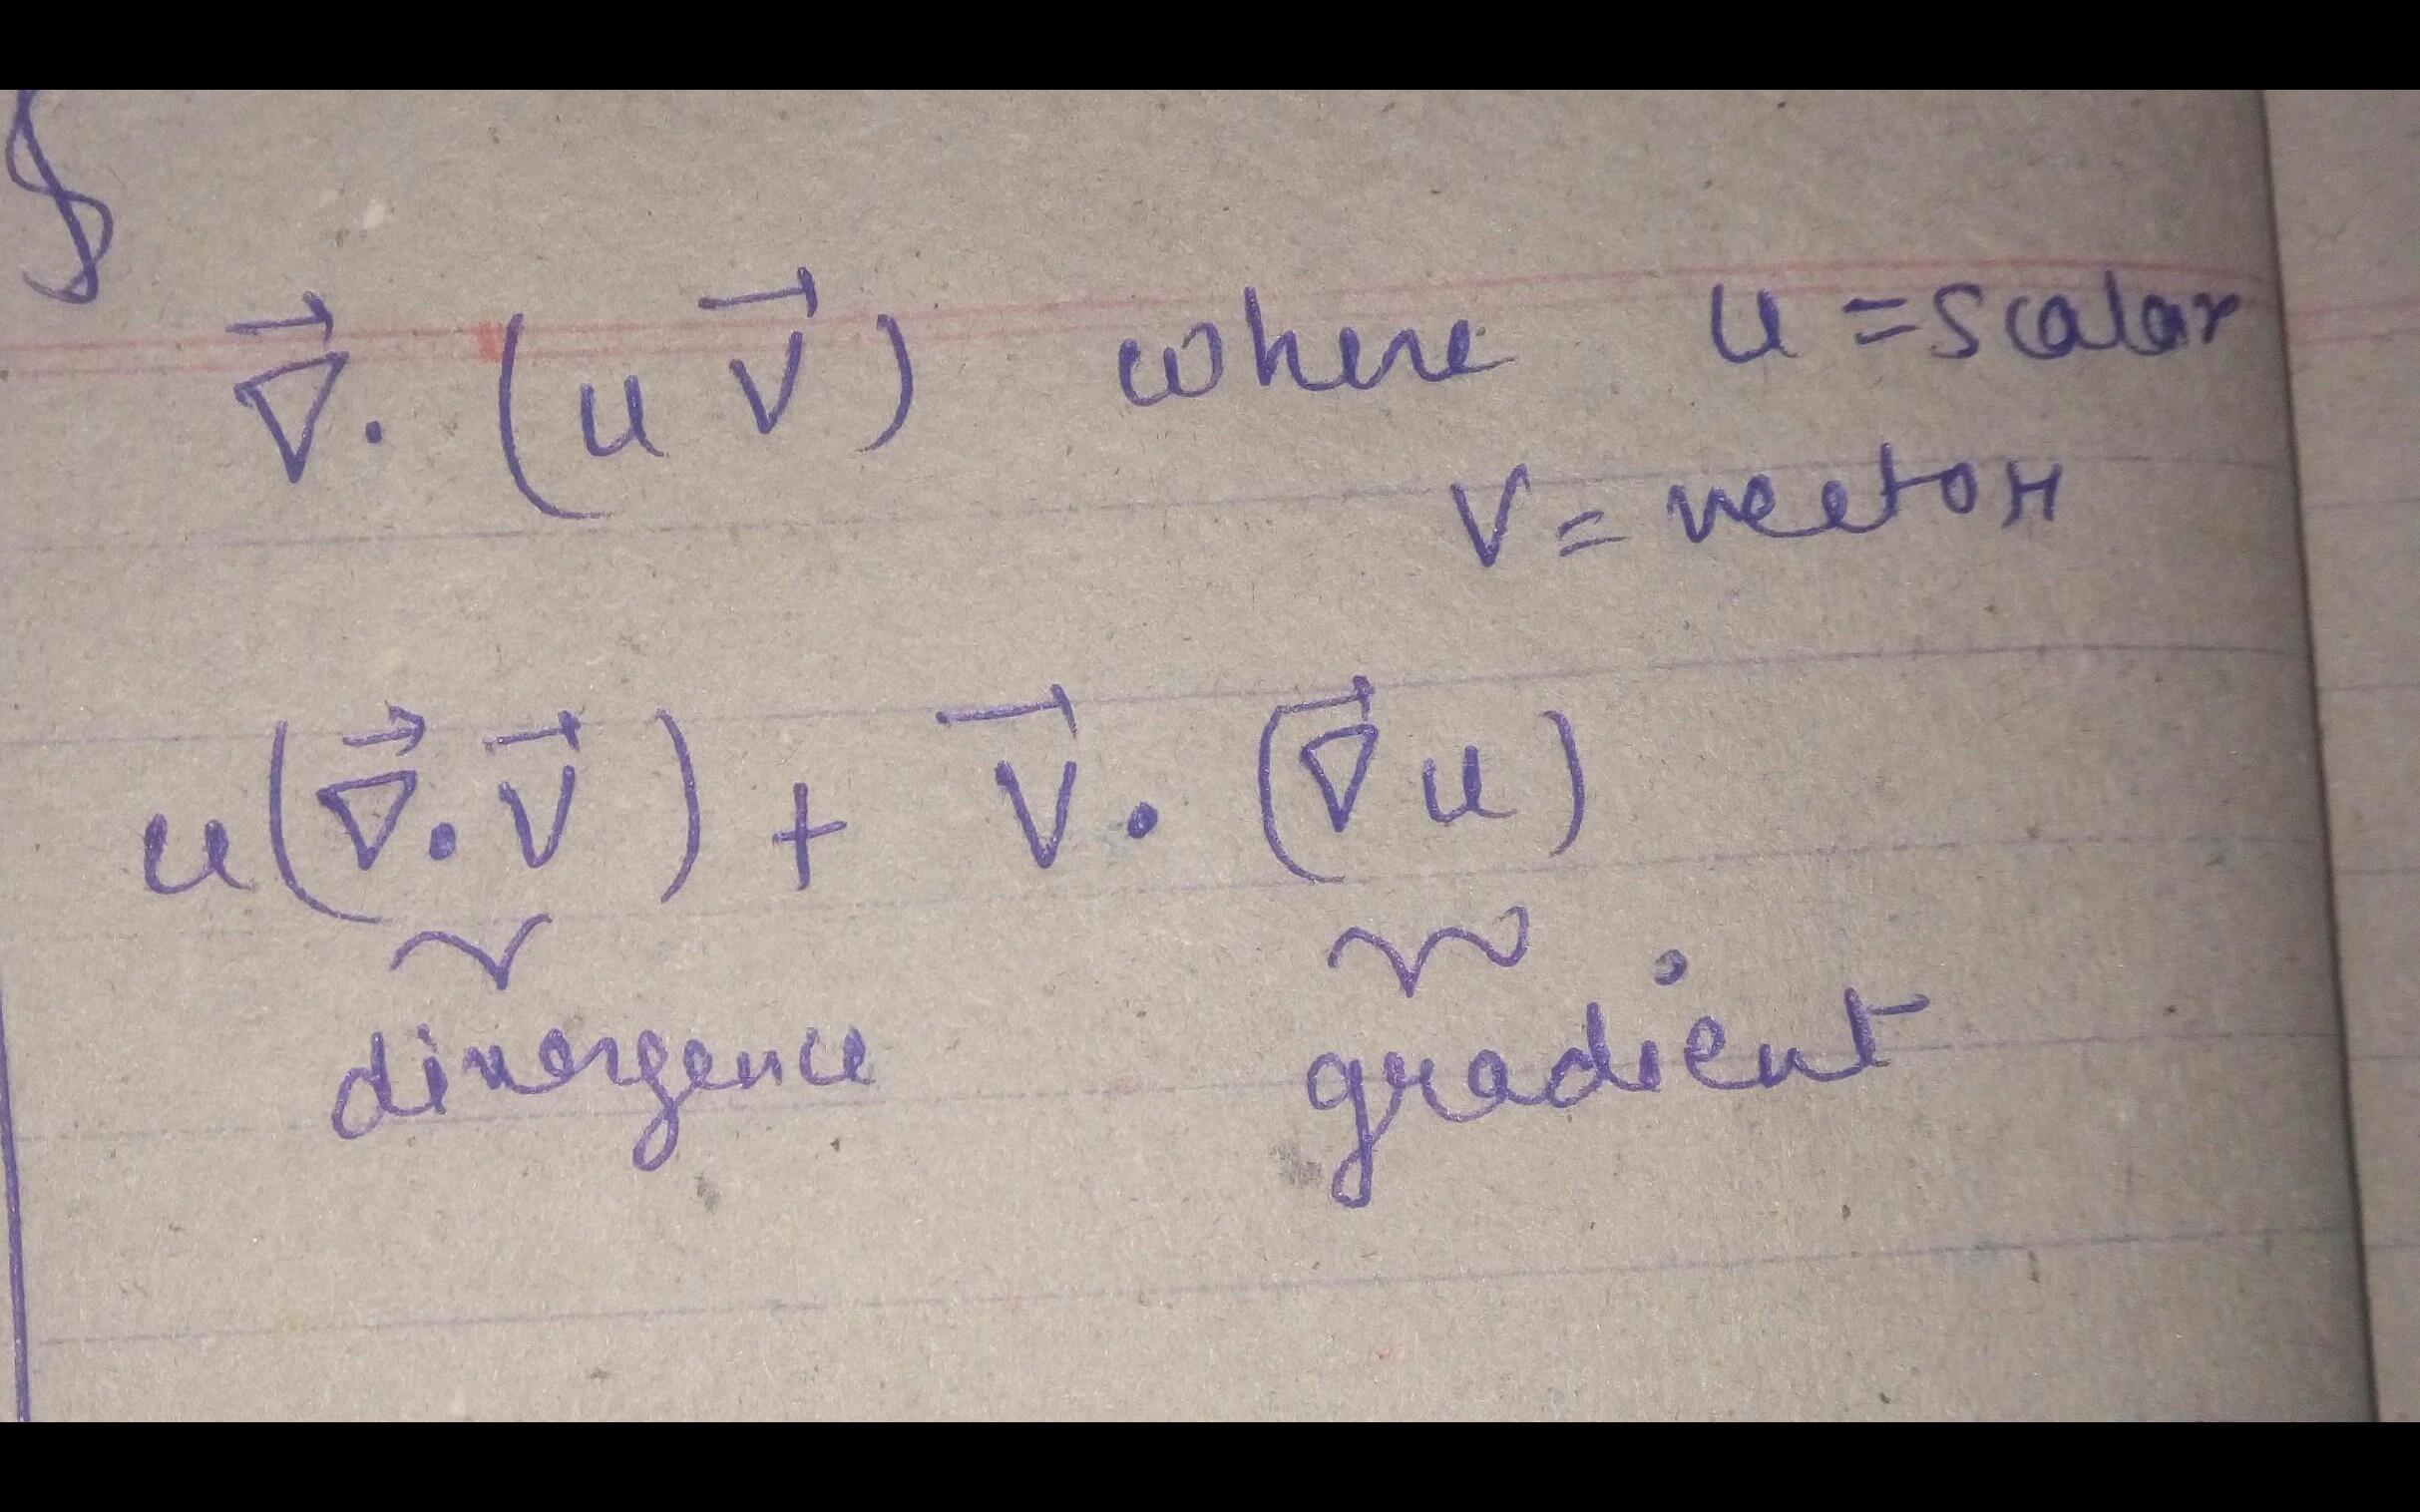 ∇⃗ . (u V⃗) where u = scalar
V = vector
u(∇⃗ . V⃗) + V⃗ . (∇⃗ u)
divergence gradient